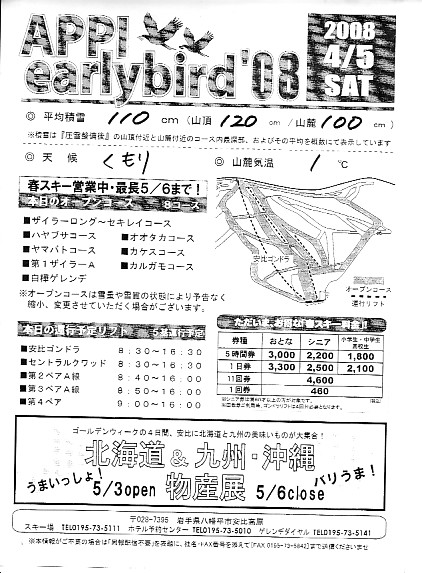 APPI
earlybird'08
2008
4/5
SAT
◎ 平均積雪 110 cm (山頂 120 cm / 山麓 100 cm)
※積雪は『圧雪整備後』の山頂付近と山麓付近のコース内最深部、およびその平均を概数にて表示しています
◎ 天候 くもり ◎ 山麓気温 1 ℃
春スキー営業中・最長5/6まで!
本日のオープンコース
■ザイラーロング〜セキレイコース
■ハヤブサコース ■オオタカコース
■ヤマバトコース ■カケスコース
■第1ザイラーA ■カルガモコース
■白樺ゲレンデ
※オープンコースは雪量や雪質の状態により予告なく
縮小、変更させていただく場合がございます。
安比ゴンドラ
オープンコース
運行リフト
本日の運行予定リフト
■安比ゴンドラ 8:30〜16:30
■セントラルクワッド 8:30〜16:30
■第2ペアA線 8:40〜16:00
■第3ペアA線 8:50〜16:00
■第4ペア 9:00〜16:00
券種 おとな シニア 小学生・中学生 高校生
5時間券 3,000 2,200 1,800
1日券 3,300 2,500 2,100
11回券 4,600
1回券 460
ゴールデンウィークの4日間、安比に北海道と九州の美味いものが大集合!
北海道&九州・沖縄
うまいっしょ! 物産展 バリうま!
5/3open 5/6close
〒028-7395 岩手県八幡平市安比高原
スキー場 TEL0195-73-5111 ホテル予約センター TEL0195-73-5010 ゲレンデダイヤル TEL0195-73-5141
※本情報がご不要の場合は「同報配信不要」を表題に、社名・FAX番号を添えて「FAX 0195-73-5842」まで送信くださいませ